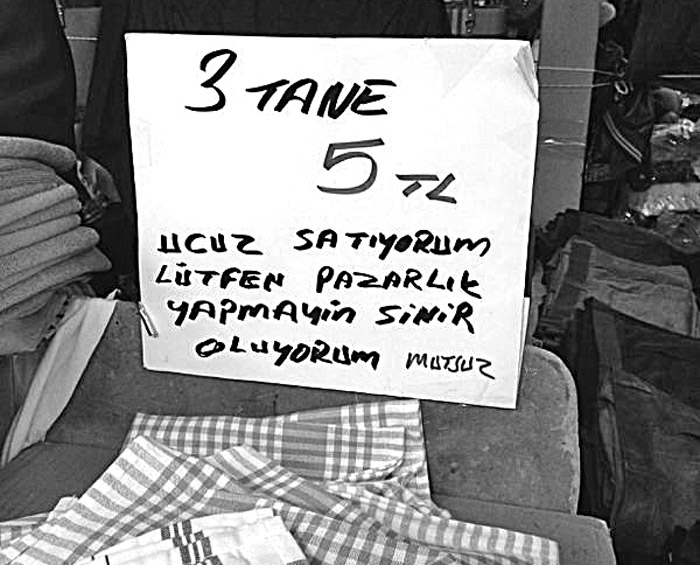 3 TANE
5 TL
UCUZ SATIYORUM
LÜTFEN PAZARLIK
YAPMAYIN SİNİR
OLUYORUM MUTSUZ